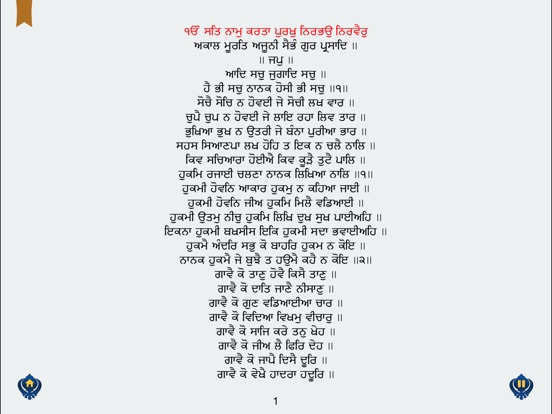 ੴ ਸਤਿ ਨਾਮੁ ਕਰਤਾ ਪੁਰਖੁ ਨਿਰਭਉ ਨਿਰਵੈਰੁ
ਅਕਾਲ ਮੂਰਤਿ ਅਜੂਨੀ ਸੈਭੰ ਗੁਰ ਪ੍ਰਸਾਦਿ ॥
॥ ਜਪੁ ॥
ਆਦਿ ਸਚੁ ਜੁਗਾਦਿ ਸਚੁ ॥
ਹੈ ਭੀ ਸਚੁ ਨਾਨਕ ਹੋਸੀ ਭੀ ਸਚੁ ॥੧॥
ਸੋਚੈ ਸੋਚਿ ਨ ਹੋਵਈ ਜੇ ਸੋਚੀ ਲਖ ਵਾਰ ॥
ਚੁਪੈ ਚੁਪ ਨ ਹੋਵਈ ਜੇ ਲਾਇ ਰਹਾ ਲਿਵ ਤਾਰ ॥
ਭੁਖਿਆ ਭੁਖ ਨ ਉਤਰੀ ਜੇ ਬੰਨਾ ਪੁਰੀਆ ਭਾਰ ॥
ਸਹਸ ਸਿਆਣਪਾ ਲਖ ਹੋਹਿ ਤ ਇਕ ਨ ਚਲੈ ਨਾਲਿ ॥
ਕਿਵ ਸਚਿਆਰਾ ਹੋਈਐ ਕਿਵ ਕੂੜੈ ਤੁਟੈ ਪਾਲਿ ॥
ਹੁਕਮਿ ਰਜਾਈ ਚਲਣਾ ਨਾਨਕ ਲਿਖਿਆ ਨਾਲਿ ॥੧॥
ਹੁਕਮੀ ਹੋਵਨਿ ਆਕਾਰ ਹੁਕਮੁ ਨ ਕਹਿਆ ਜਾਈ ॥
ਹੁਕਮੀ ਹੋਵਨਿ ਜੀਅ ਹੁਕਮਿ ਮਿਲੈ ਵਡਿਆਈ ॥
ਹੁਕਮੀ ਉਤਮੁ ਨੀਚੁ ਹੁਕਮਿ ਲਿਖਿ ਦੁਖ ਸੁਖ ਪਾਈਅਹਿ ॥
ਇਕਨਾ ਹੁਕਮੀ ਬਖਸੀਸ ਇਕਿ ਹੁਕਮੀ ਸਦਾ ਭਵਾਈਅਹਿ ॥
ਹੁਕਮੈ ਅੰਦਰਿ ਸਭੁ ਕੋ ਬਾਹਰਿ ਹੁਕਮ ਨ ਕੋਇ ॥
ਨਾਨਕ ਹੁਕਮੈ ਜੇ ਬੁਝੈ ਤ ਹਉਮੈ ਕਹੈ ਨ ਕੋਇ ॥੨॥
ਗਾਵੈ ਕੋ ਤਾਣੁ ਹੋਵੈ ਕਿਸੈ ਤਾਣੁ ॥
ਗਾਵੈ ਕੋ ਦਾਤਿ ਜਾਣੈ ਨੀਸਾਣੁ ॥
ਗਾਵੈ ਕੋ ਗੁਣ ਵਡਿਆਈਆ ਚਾਰ ॥
ਗਾਵੈ ਕੋ ਵਿਦਿਆ ਵਿਖਮੁ ਵੀਚਾਰੁ ॥
ਗਾਵੈ ਕੋ ਸਾਜਿ ਕਰੇ ਤਨੁ ਖੇਹ ॥
ਗਾਵੈ ਕੋ ਜੀਅ ਲੈ ਫਿਰਿ ਦੇਹ ॥
ਗਾਵੈ ਕੋ ਜਾਪੈ ਦਿਸੈ ਦੂਰਿ ॥
ਗਾਵੈ ਕੋ ਵੇਖੈ ਹਾਦਰਾ ਹਦੂਰਿ ॥
1